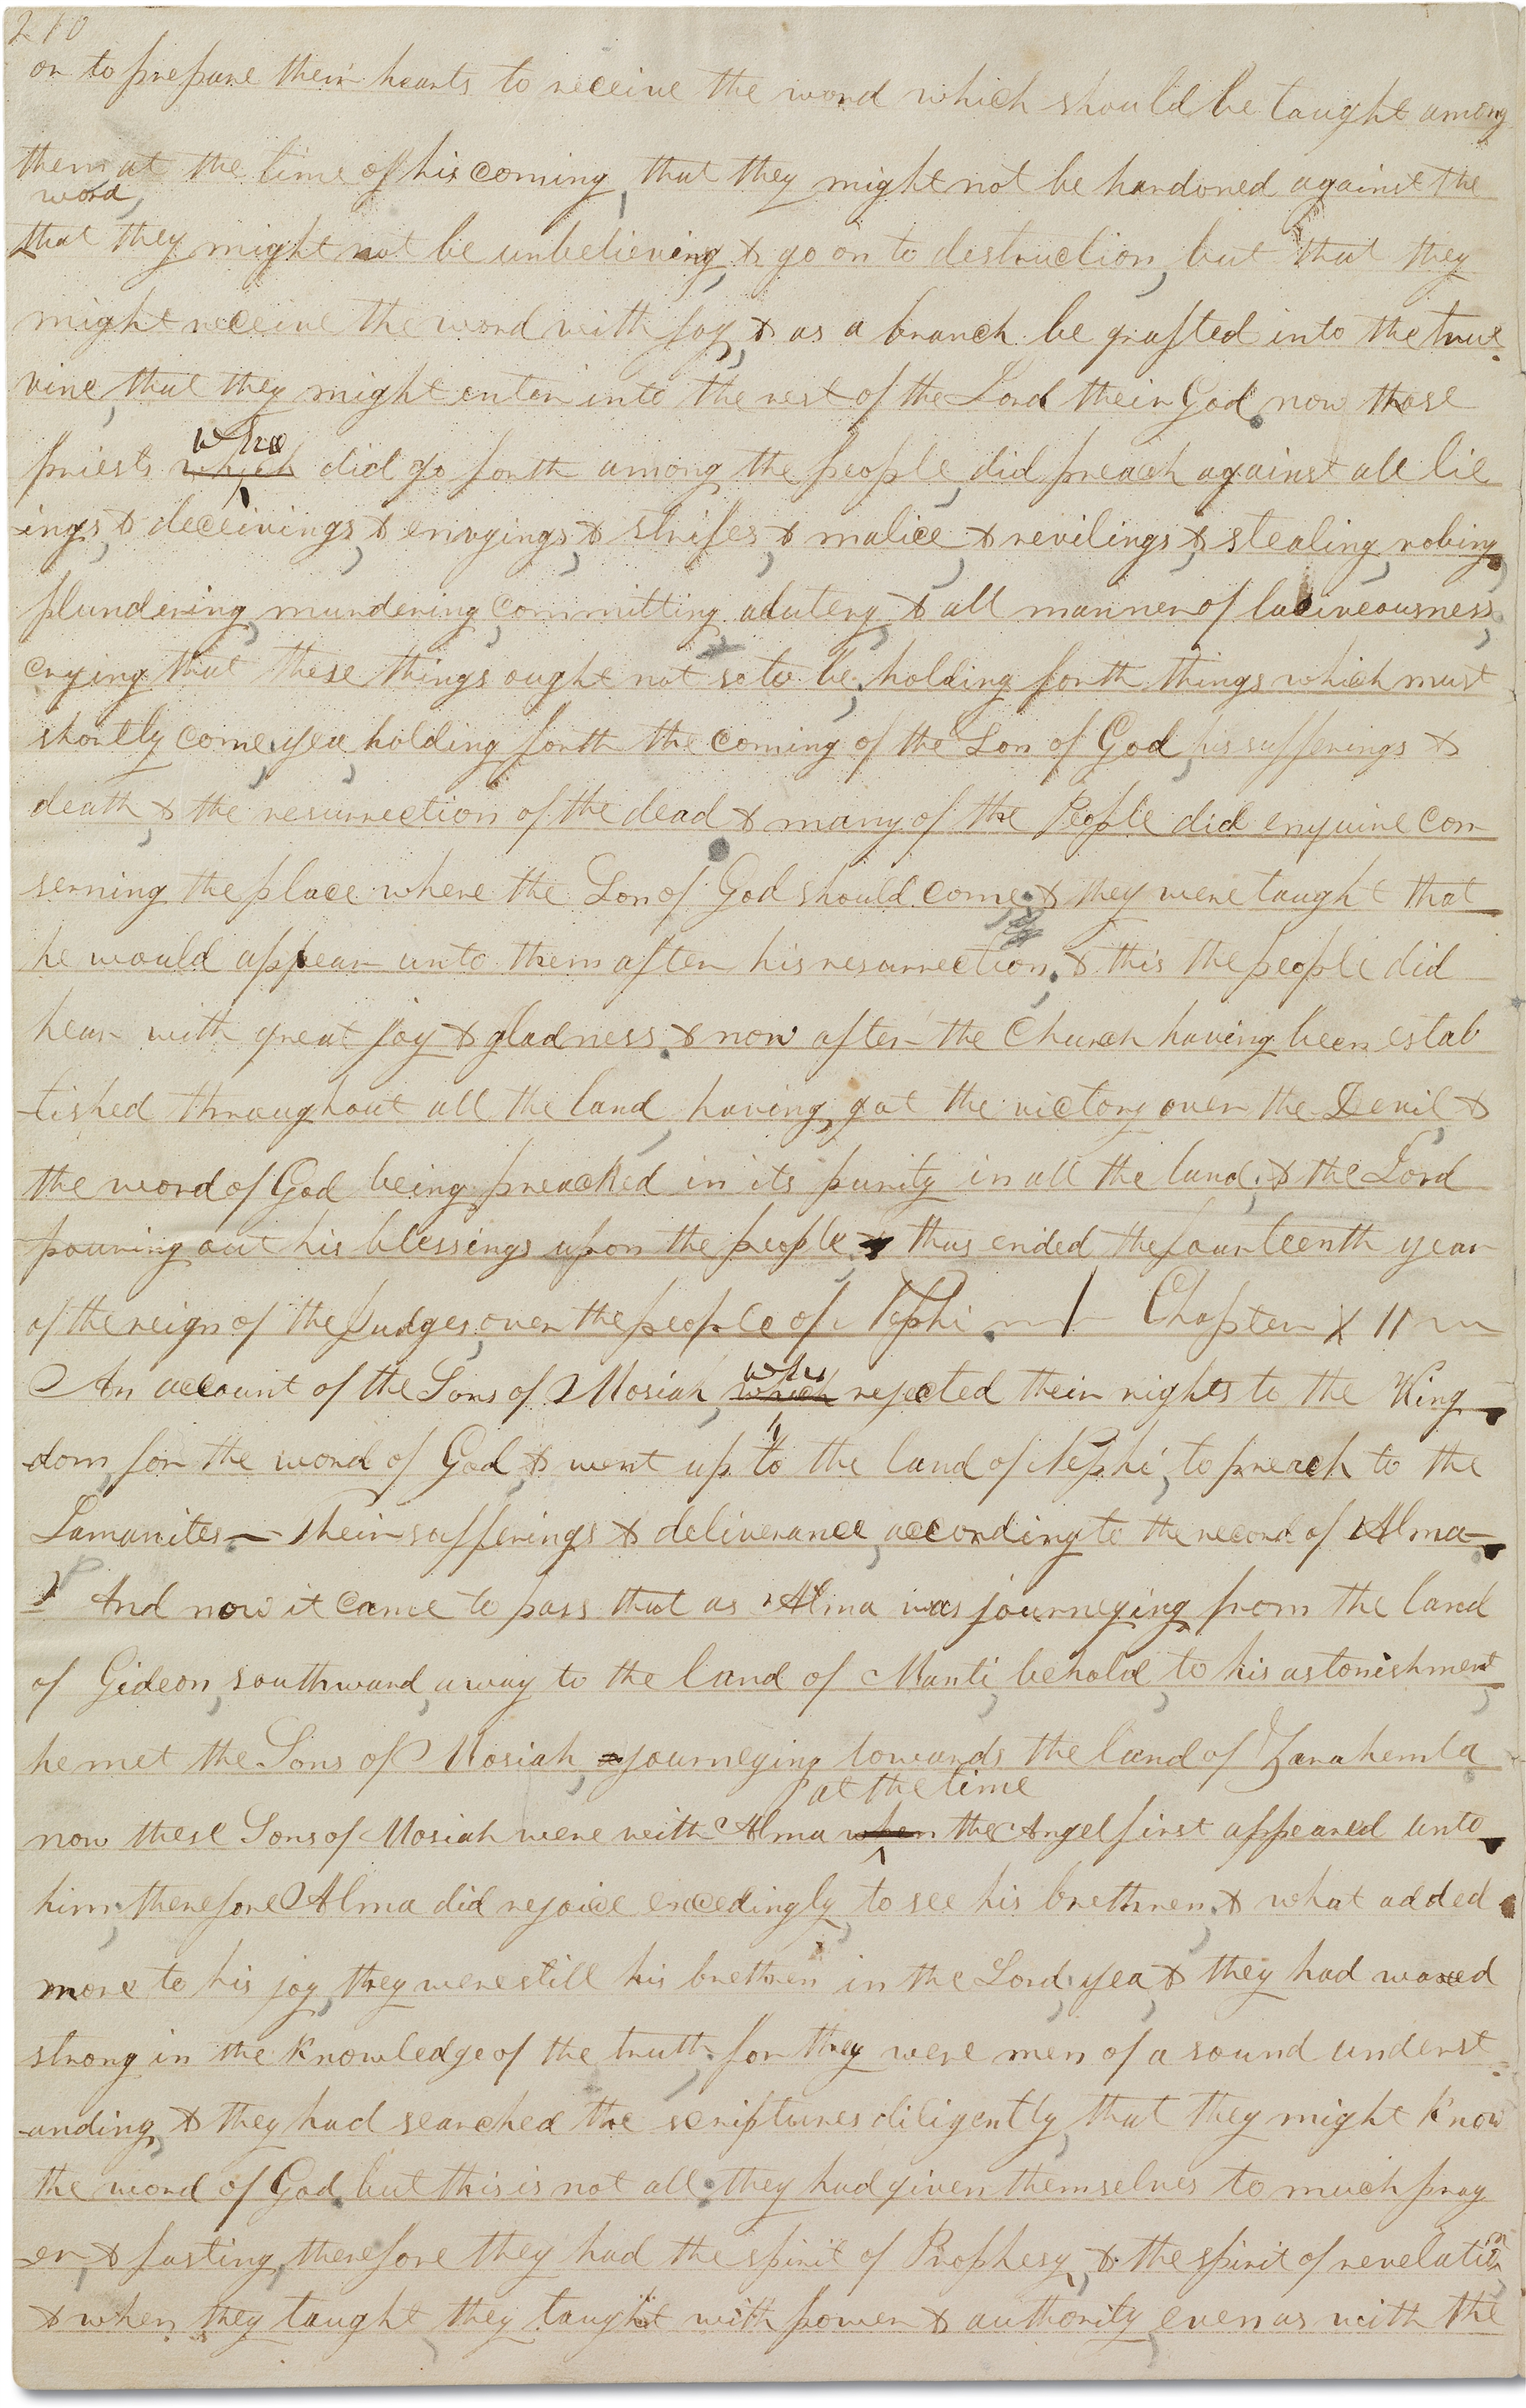 210
or to prepare their hearts to receive the word which should be taught among
them at the time of his coming, that they might not be hardoned against the
word,
that they might not be unbelieving, & go on to destruction, but that they
might receive the word with joy, & as a branch be grafted into the true
vine, that they might enter into the rest of the Lord their God. now those
who
priests which did go forth among the people, did preach against all lie
-ings, & deceivings, & envyings, & strifes, & malice, & revilings, & stealing, robing,
plundering, murdering, committing adultery, & all manner of lasciveousness,
crying that these things ought not so to be, holding forth things which must
shortly come, yea, holding forth the coming of the Son of God, his sufferings &
death, & the resurrection of the dead & many of the People did enquire con
serning the place where the Son of God should come, & they were taught that
he would appear unto them after his resurrection, & this the people did
hear with great joy & gladness. & now after the Church having been estab
-lished throughout all the land, having got the victory over the Devil, &
the word of God being preached in its purity in all the land, & the Lord
pouring out his blessings upon the people, & thus ended the fourteenth year
of the reign of the Judges, over the people of Nephi. Chapter X II
An account of the Sons of Mosiah, who
which rejected their rights to the King
-dom, for the word of God, & went up to the land of Nephi, to preach to the
Lamanites.— Their sufferings & deliverance, according to the record of Alma—
And now it came to pass that as Alma was journeying from the land
of Gideon, southward, away to the land of Manti, behold, to his astonishment,
he met the Sons of Mosiah, a journeying towards the land of Zarahemla.
at the time
now these Sons of Mosiah were with Alma when the Angel first appeared unto
him, therefore Alma did rejoice exceedingly, to see his brethren, & what added
more to his joy, they were still his brethren in the Lord, yea, & they had waxed
strong in the knowledge of the truth, for they were men of a sound underst
-anding, & they had searched the scriptures diligently, that they might know
the word of God. but this is not all, they had given themselves to much pray
-er, & fasting, therefore they had the spirit of Prophesy, & the spirit of revelation,
& when they taught, they taught with power & authority, even as with the